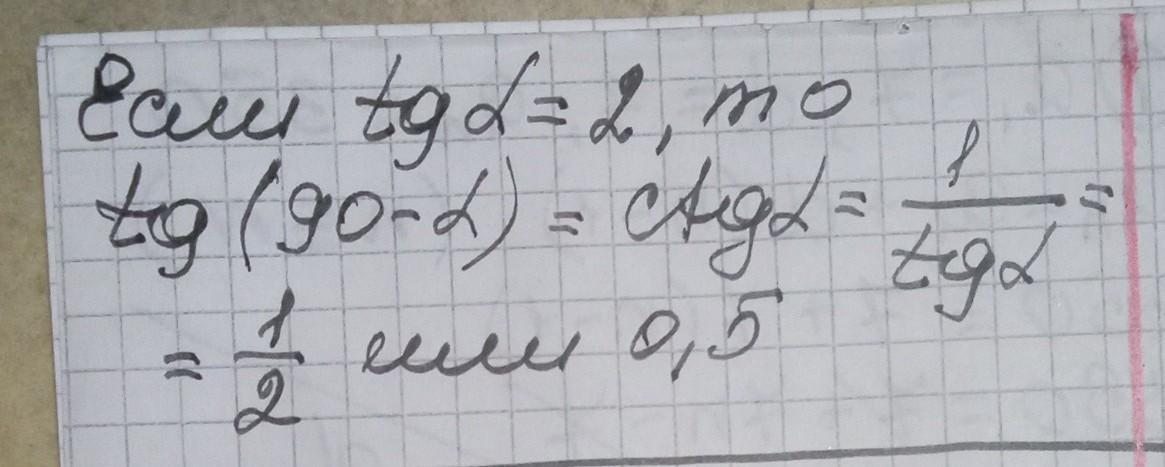 Если tg α = 2, то
tg (90 - α) = ctg α = 1/tg α =
= 1/2 или 0,5